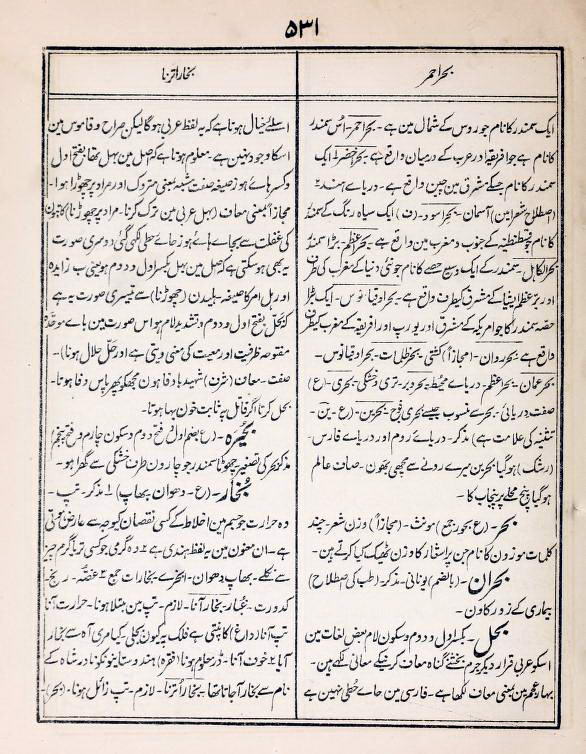 ۵۳۱
بحر احمر
بخار اترنا
ایک سمندر کا نام جو روس کے شمال مین ہے۔ بحر احمر۔ اُس سمندر
کا نام ہے جو افریقہ اور عرب کے درمیان واقع ہے۔ بحر اخضر۔ ایک
سمندر کا نام جسکے مشرق مین چین واقع ہے۔ دریاے ہند۔
(اصطلاح شعرا مین) آسمان۔ بحر اسود۔ (ف) ایک سیاہ رنگ کے سمندر
کا نام جو قسطنطنیہ کے جنوب و مغرب مین واقع ہے۔ بحر اعظم۔ بڑا سمندر
بحر الکاہل۔ سمندر کے ایک وسیع حصے کا نام جو نئی دنیا کے مغرب کی طرف
اور بر اعظم ایشیا کے مشرق کیطرف واقع ہے۔ بحر اوقیانوس۔ ایک بڑا
حصہ سمندر کا جو امریکہ کے مشرق اور یورپ اور افریقہ کے مغرب کیطرف
واقع ہے۔ بحر روان۔ (مجازاً) کشتی۔ بحر ظلمات۔ بحر اوقیانوس۔
بحر عمان۔ بحر اعظم۔ دریاے محیط۔ بحر و بر۔ تری و خشکی۔ بحری۔ (ع)
صفت۔ دریائی۔ بحر سے منسوب جیسے بحری فوج۔ بحرین۔ (ع۔ ین۔
تثنیہ کی علامت ہے) مذکر۔ دریاے روم اور دریاے فارس
(رشک) ہو گیا بحرین میرے رونے سے صحن۔ صاف عالم
ہو گیا پنج محلے پر پنجاب کا۔
بحر۔ (ع بحور۔ جمع) مونث۔ (مجازاً) وزن شعر۔ چند
کلمات موزون کا نام جن پر اشعار کا وزن ٹھیک کیا کرتے ہین۔
بحران۔ (بالضم) یونانی۔ مذکر۔ (طب کی اصطلاح)
بیماری کے زور کا دن۔
بحل۔ بکسر اول و دوم و سکون لام بعض لغات مین
اسکو عربی قرار دیکر جرم بخشنے گناہ معاف کرنیکے معانی لکھے ہین۔
بہار عجم مین بمعنی معاف لکھا ہے۔ فارسی مین حاے حطی نہین ہے
اسلئے خیال ہوتا ہے کہ یہ لفظ عربی ہوگا لیکن صراح و قاموس مین
اسکا وجود نہین ہے۔ معلوم ہوتا ہے کہ اصل مین بہل تھا بفتح اول
وکسر ہاے ہوز صیغہ صفت مشبہ بمعنی متروک اور مراد چھوڑا ہوا۔
مجازاً بمعنی معاف (بہل عربی مین ترک کرنا۔ مراد چھوڑنا) کاتبون
کی غفلت سے بجاے ہاے ہوز حاے حطی لکھی گئی دوسری صورت
یہ بھی ہو سکتی ہے کہ اصل مین بہل بکسر اول و دوم ہو یعنی ب زایدہ
اور ہل امر کا صیغہ۔ ہلیدن (چھوڑنا) سے تیسری صورت یہ ہے
کہ بحل بفتح اول و دوم و تشدید لام ہو اس صورت مین باے موحدہ
مفتوحہ ظرفیت اور معیت کی معنی دیتی ہے اور حل حلال ہونا)۔
صفت۔ معاف (شرف) شہید باوفا ہون مجھکو پھر پاس وفا ہوتا۔
بحل کرتا اگر قاتل پہ ثابت خون بہا ہوتا۔
بحیرہ۔ (ع بضم اول و فتح دوم و سکون چہارم و فتح پنجم)
مذکر بحر کی تصغیر۔ چھوٹا سمندر جو چارون طرف خشکی سے گھرا ہو۔
بُخار۔ (ع۔ دھوان بھاپ) ۱۔ مذکر۔ تپ۔
وہ حرارت جو جسم مین اخلاط کے کسی نقصان کیوجہ سے عارض ہوتی
ہے۔ ان معنون مین یہ لفظ ہندی ہے ۲۔ وہ گرمی جو کسی تر یا گرم چیز
سے نکلے۔ بھاپ دھوان۔ ابخرے۔ بخارات جمع ۳۔ غصّہ۔ رنج۔
کدورت۔ غبار۔ بخار آنا۔ لازم۔ تپ مین مبتلا ہونا۔ حرارت آنا
تپ آنا (داغ) کانپتی ہے فلک پہ کیون بجلی۔ کیا مری آہ سے بخار
آیا ۲۔ خوف آنا۔ ڈر معلوم ہونا (فقرہ) ہندوستانیونکو نادر شاہ کے
نام سے بخار آجاتا تھا۔ بخار اُترنا۔ لازم۔ تپ زائل ہونا۔ (بحر)